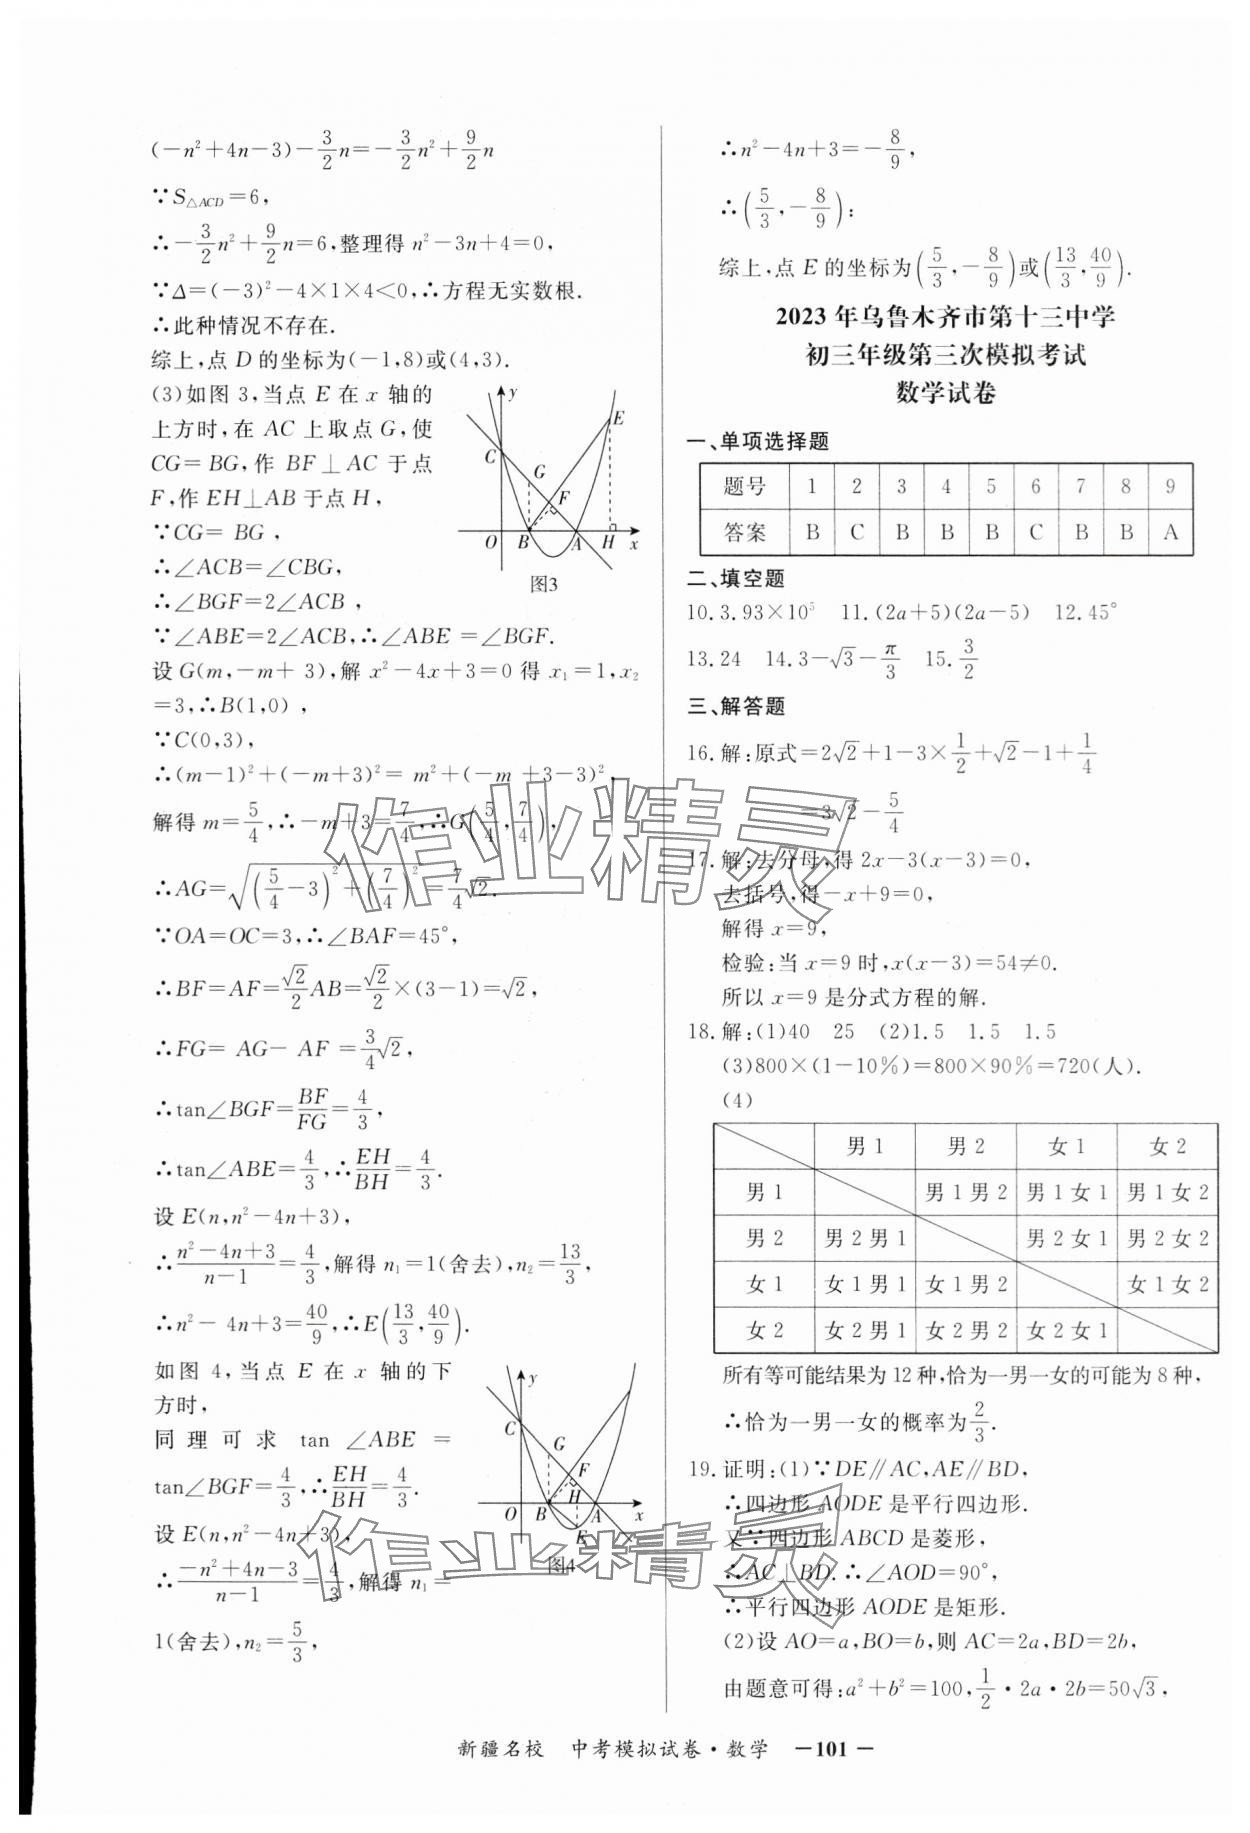 (－n²＋4n－3)－3/2n＝－3/2n²＋9/2n
∵S△ACD＝6,
∴－3/2n²＋9/2n＝6,整理得 n²－3n＋4＝0,
∵Δ＝(－3)²－4×1×4<0,∴方程无实数根.
∴此种情况不存在.
综上,点 D 的坐标为(－1,8)或(4,3).
(3)如图 3,当点 E 在 x 轴的
上方时,在 AC 上取点 G,使
CG＝BG,作 BF⊥AC 于点
F,作 EH⊥AB 于点 H,
∵CG＝ BG ,
∴∠ACB＝∠CBG,
∴∠BGF＝2∠ACB ,
∵∠ABE＝2∠ACB,∴∠ABE ＝∠BGF.
y
E
C
G
F
O B A H x
图3
设 G(m,－m＋ 3),解 x²－4x＋3＝0 得 x₁＝1,x₂
＝3,∴B(1,0) ,
∵C(0,3),
∴(m－1)²＋(－m＋3)²＝ m²＋(－m ＋3－3)²,
解得 m＝5/4,∴－m＋3＝7/4,∴G(5/4,7/4),
∴AG＝√((5/4－3)²＋(7/4)²)＝7/4√2.
∵OA＝OC＝3,∴∠BAF＝45°,
∴BF＝AF＝√2/2AB＝√2/2×(3－1)＝√2,
∴FG＝ AG－ AF ＝3/4√2,
∴tan∠BGF＝BF/FG＝4/3,
∴tan∠ABE＝4/3,∴EH/BH＝4/3.
设 E(n,n²－4n＋3),
∴(n²－4n＋3)/(n－1)＝4/3,解得 n₁＝1(舍去),n₂＝13/3,
∴n²－ 4n＋3＝40/9,∴E(13/3,40/9).
如图 4,当点 E 在 x 轴的下
方时,
同理可求 tan ∠ABE ＝
tan∠BGF＝4/3,∴EH/BH＝4/3.
设 E(n,n²－4n＋3),
∴(－n²＋4n－3)/(n－1)＝4/3,解得 n₁＝
1(舍去),n₂＝5/3,
y
C
G
F
H
O B A x
E
图4
∴n²－4n＋3＝－8/9,
∴(5/3,－8/9);
综上,点 E 的坐标为(5/3,－8/9)或(13/3,40/9).
2023 年乌鲁木齐市第十三中学
初三年级第三次模拟考试
数学试卷
一、单项选择题
题号 1 2 3 4 5 6 7 8 9
答案 B C B B B C B B A
二、填空题
10.3.93×10⁵ 11.(2a＋5)(2a－5) 12.45°
13.24 14.3－√3－π/3 15.3/2
三、解答题
16.解:原式＝2√2＋1－3×1/2＋√2－1＋1/4
＝3√2－5/4
17.解:去分母,得 2x－3(x－3)＝0,
去括号,得－x＋9＝0,
解得 x＝9,
检验:当 x＝9 时,x(x－3)＝54≠0.
所以 x＝9 是分式方程的解.
18.解:(1)40 25 (2)1.5 1.5 1.5
(3)800×(1－10%)＝800×90%＝720(人).
(4)
男 1 男 2 女 1 女 2
男 1 男 1 男 2 男 1 女 1 男 1 女 2
男 2 男 2 男 1 男 2 女 1 男 2 女 2
女 1 女 1 男 1 女 1 男 2 女 1 女 2
女 2 女 2 男 1 女 2 男 2 女 2 女 1
所有等可能结果为 12 种,恰为一男一女的可能为 8 种,
∴恰为一男一女的概率为2/3.
19.证明:(1)∵DE∥AC,AE∥BD,
∴四边形 AODE 是平行四边形.
又∵四边形 ABCD 是菱形,
∴AC⊥BD.∴∠AOD＝90°,
∴平行四边形 AODE 是矩形.
(2)设 AO＝a,BO＝b,则 AC＝2a,BD＝2b,
由题意可得:a²＋b²＝100,1/2·2a·2b＝50√3,
作业精灵
作业精灵
新疆名校 中考模拟试卷·数学 －101－